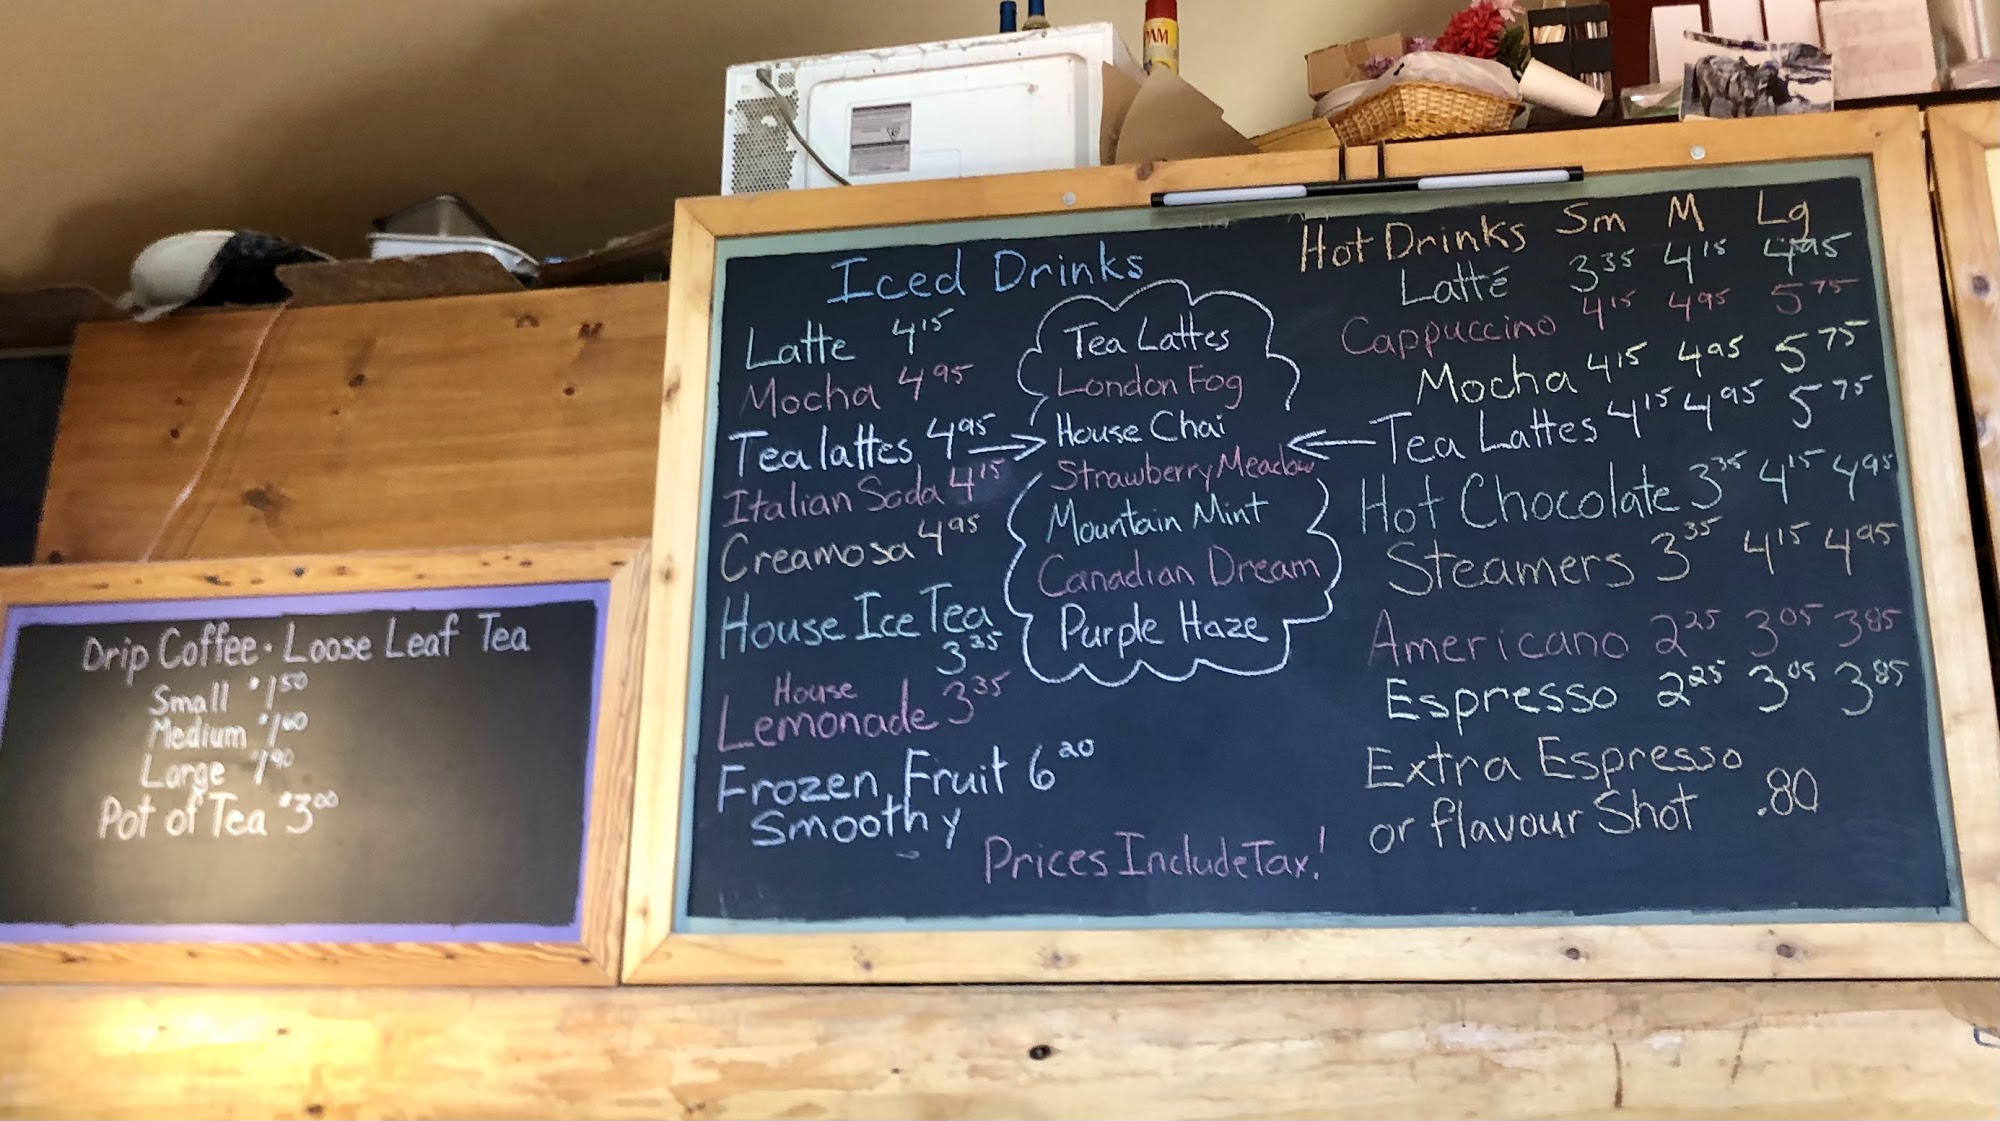 Drip Coffee · Loose Leaf Tea
Small $1.50
Medium $1.60
Large $1.90
Pot of Tea $3.00
Iced Drinks
Latte 4.15
Mocha 4.95
Tea lattes 4.95
Italian Soda 4.15
Creamosa 4.95
House Ice Tea
3.35
House
Lemonade 3.35
Frozen Fruit 6.20
Smoothy
Tea Lattes
London Fog
House Chai
Strawberry Meadow
Mountain Mint
Canadian Dream
Purple Haze
Prices Include Tax!
Hot Drinks Sm M Lg
Latté 3.35 4.15 4.95
Cappuccino 4.15 4.95 5.75
Mocha 4.15 4.95 5.75
Tea Lattes 4.15 4.95 5.75
Hot Chocolate 3.35 4.15 4.95
Steamers 3.35 4.15 4.95
Americano 2.25 3.05 3.85
Espresso 2.25 3.05 3.85
Extra Espresso
or flavour Shot .80
PAM